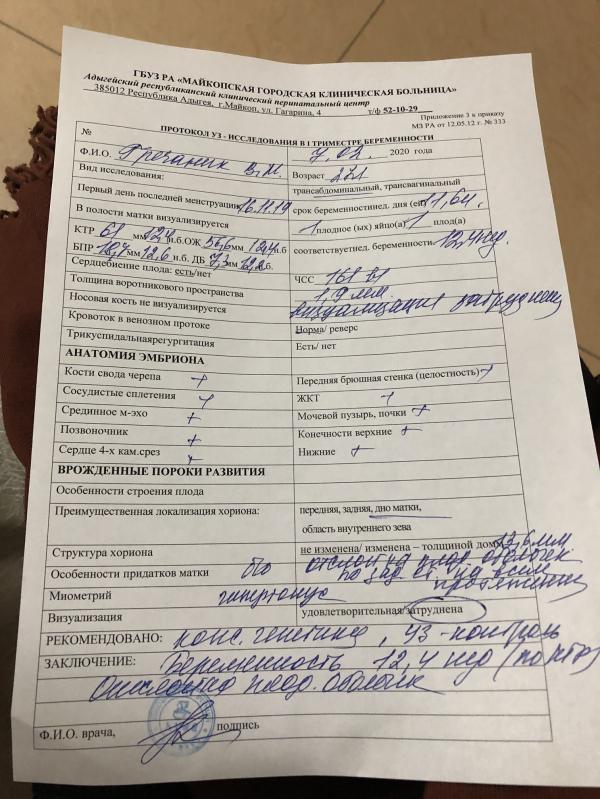 ГБУЗ РА «МАЙКОПСКАЯ ГОРОДСКАЯ КЛИНИЧЕСКАЯ БОЛЬНИЦА»
Адыгейский республиканский клинический перинатальный центр
385012 Республика Адыгея, г.Майкоп, ул. Гагарина, 4 т/ф 52-10-29
Приложение 3 к приказу
МЗ РА от 12.05.12 г. № 333
№ ПРОТОКОЛ УЗ - ИССЛЕДОВАНИЯ В I ТРИМЕСТРЕ БЕРЕМЕННОСТИ
Ф.И.О. 7.02. 2020 года
Вид исследования: Возраст
трансабдоминальный, трансвагинальный
Первый день последней менструации 16.11.19 срок беременностинед. дня (ей) 11,6н.
В полости матки визуализируется 1 плодное (ых) яйцо(а) 1 плод(а)
КТР 61 мм 12,4 н.б.ОЖ 56,6 мм 12,4 н.б соответствуетнед. беременности 12,4 нед.
БПР 18,7 мм 12,6 н.б. ДБ 7,3 мм 12,2 б.
Сердцебиение плода: есть/нет ЧСС 161 в1
Толщина воротникового пространства 1,9 мм.
Носовая кость не визуализируется визуализация затруднена
Кровоток в венозном протоке Норма/ реверс
Трикуспидальнаярегургитация Есть/ нет
АНАТОМИЯ ЭМБРИОНА
Кости свода черепа + Передняя брюшная стенка (целостность) +
Сосудистые сплетения + ЖКТ +
Срединное м-эхо + Мочевой пузырь, почки +
Позвоночник + Конечности верхние +
Сердце 4-х кам.срез + Нижние +
ВРОЖДЕННЫЕ ПОРОКИ РАЗВИТИЯ
Особенности строения плода
Преимущественная локализация хориона: передняя, задняя, дно матки,
область внутреннего зева
Структура хориона не изменена/ изменена – толщиной до 12,6 мм
Особенности придатков матки б/о отслойка плод. оболочек
по зад. ст. на всем
протяжении
Миометрий гипертонус
Визуализация удовлетворительная/затруднена
РЕКОМЕНДОВАНО: конс. генетика, УЗ-контроль
ЗАКЛЮЧЕНИЕ: Беременность 12,4 нед (по КТР)
Отслойка плод. оболочек
Ф.И.О. врача, подпись